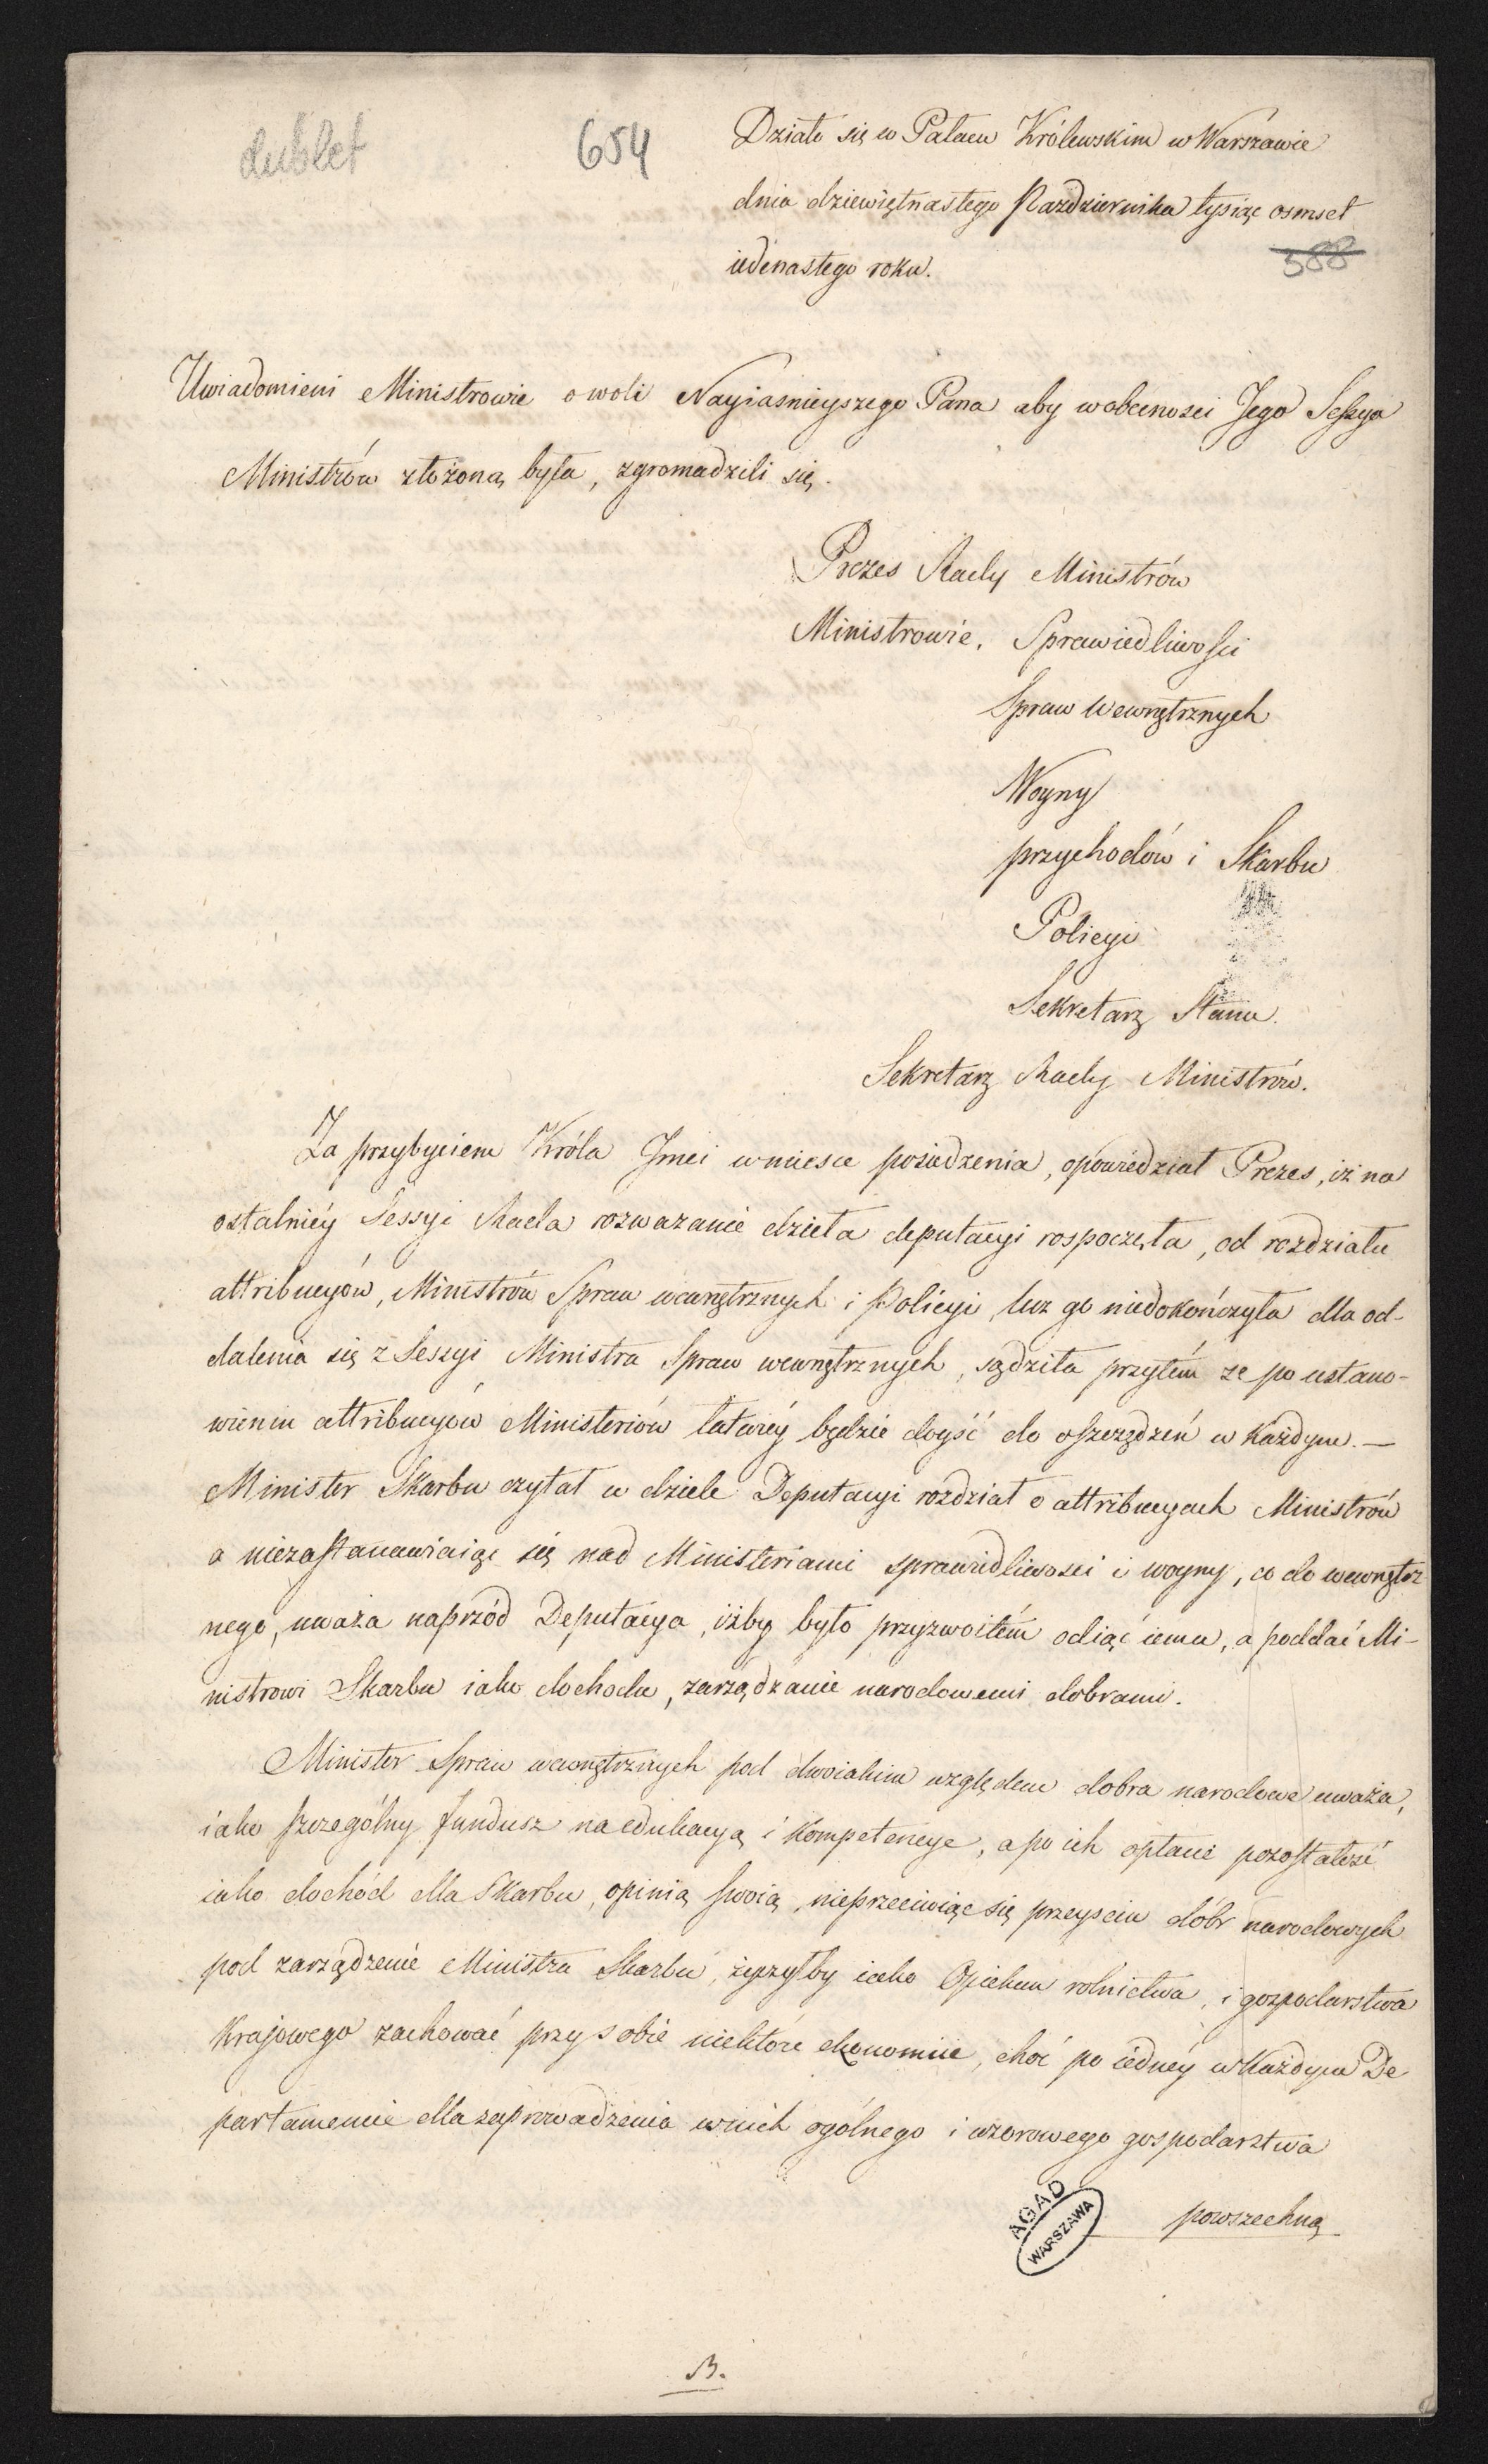 dublet
654
Działo się w Pałacu Królewskim w Warszawie
dnia dziewiętnastego Października tysiąc osmset
iedenastego roku.
388
Uwiadomieni Ministrowie o woli Nayiasnieyszego Pana aby w obecnosci Jego Sessya
Ministrów złożoną była, zgromadzili się.
Prezes Rady Ministrów
Ministrowie. Sprawiedliwości
Spraw Wewnętrznych
Woyny
przychodów i Skarbu
Policyi
Sekretarz Stanu.
Sekretarz Rady Ministrów.
Za przybyciem Króla Jmci w miesce posiedzenia, opowiedział Prezes, iż na
ostatniéy Sessyi Rada rozwazanie dzieła deputacyi rospoczęła, od rozdziału
attribucyów, Ministrów Spraw wewnętrznych i Policyi, lecz go niedokończyła dla od-
dalenia się z Sessyi Ministra Spraw wewnętrznych, sądziła przytém ze po ustano-
wieniu attribucyów Ministeriów łatwiéy będzie doyść do oszczędzeń w każdym. —
Minister Skarbu czytał w dziele Deputacyi rozdział o attribucyach Ministrów
a niezastanawiaiąc się nad Ministeriami sprawiedliwosci i woyny, co do wewnętrz
nego, uważa naprzód Deputacya, iżby było przyzwoitém odiąć iemu, a poddać Mi-
nistrowi Skarbu iako dochodu, zarządzanie narodowemi dobrami.
Minister Spraw wewnętrznych pod dwoiakim względem dobra narodowe uważa,
iako szczególny fundusz na edukacyą i kompetencye, a po ich opłacie pozostałość
iako dochód dla Skarbu, opinią swoią, nieprzeciwiąc się przeysciu dóbr narodowych
pod zarządzenie Ministra Skarbu, życzyłby iako Opiekun rolnictwa, i gospodarstwa
Krajowego zachować przy sobie niektóre ekonomiie, choć po iednéy w Każdym De
partamencie dla zaprowadzenia w nich ogólnego i wzorowego gospodarstwa
powszechną
AGAD
WARSZAWA
B.